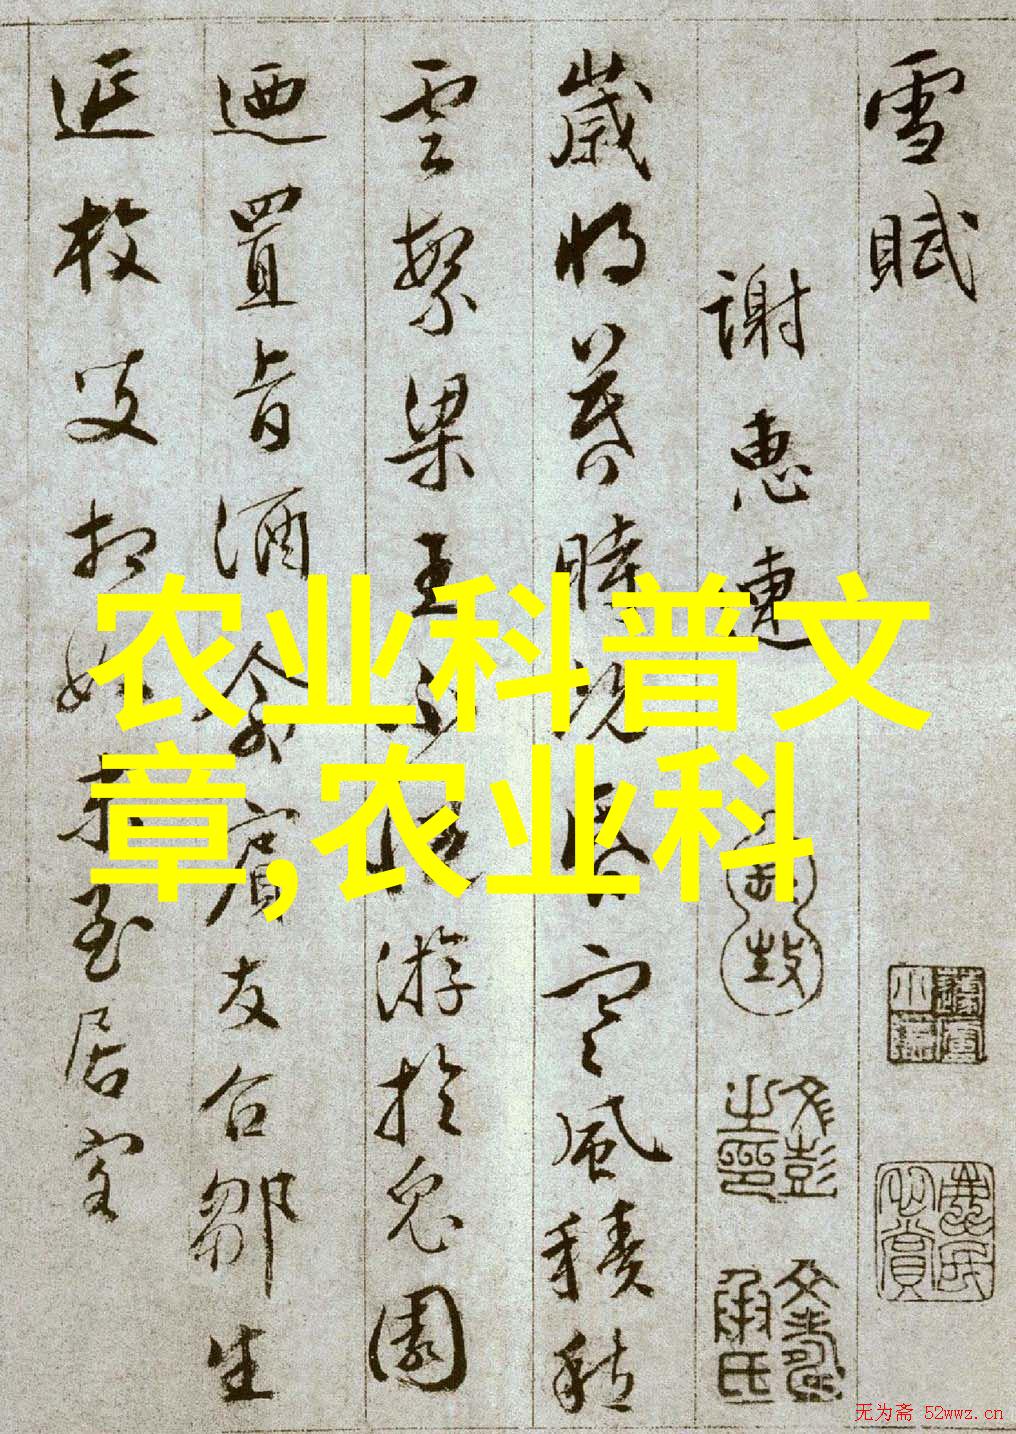 雪賦
謝惠連
歲將暮時既昏寒風積愁
雲繁梁王不悅游於兔園
迺置旨酒命賓友召鄒生
延枚叟相如末至居客
文彭之印
文壽承氏
农业科普文
章,农业科
无为斋 52wwz.cn